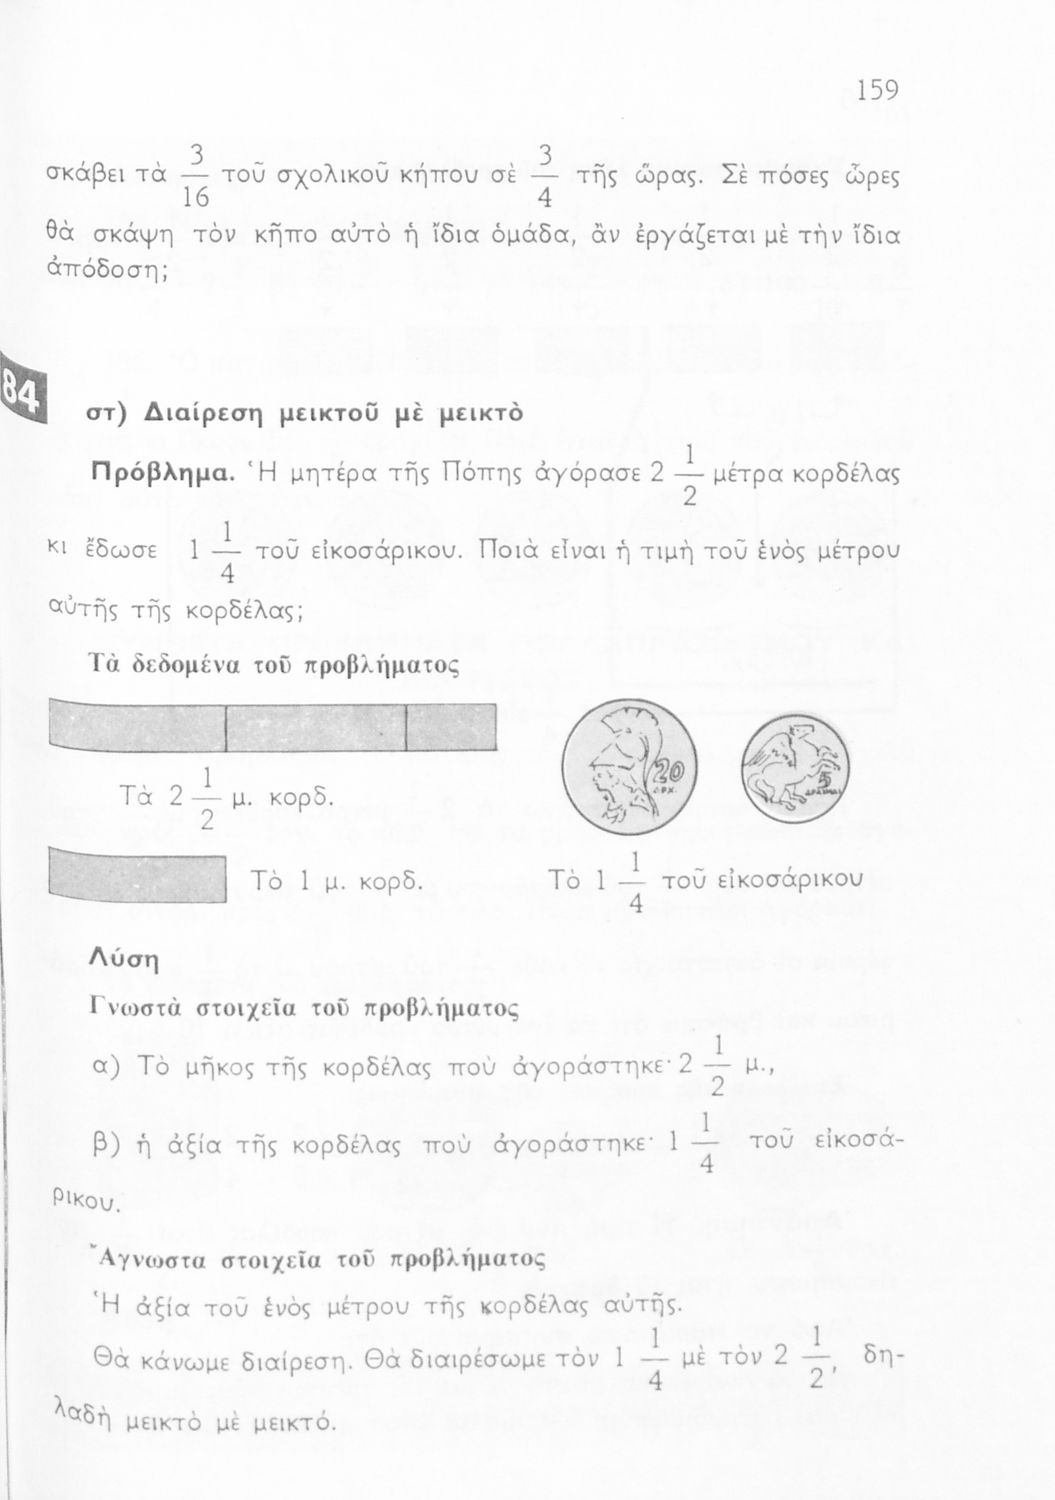 159
σκάβει τὰ 3/16 τοῦ σχολικοῦ κήπου σὲ 3/4 τῆς ὥρας. Σὲ πόσες ὧρες
θὰ σκάψη τὸν κῆπο αὐτὸ ἡ ἴδια ὁμάδα, ἂν ἐργάζεται μὲ τὴν ἴδια
ἀπόδοση;
84
στ) Διαίρεση μεικτοῦ μὲ μεικτὸ
Πρόβλημα. Ἡ μητέρα τῆς Πόπης ἀγόρασε 2 1/2 μέτρα κορδέλας
κι ἔδωσε 1 1/4 τοῦ εἰκοσάρικου. Ποιὰ εἶναι ἡ τιμὴ τοῦ ἑνὸς μέτρου
αὐτῆς τῆς κορδέλας;
Τὰ δεδομένα τοῦ προβλήματος
20
ΔΡΧ.
5
ΔΡΑΧΜΑΙ
Τὰ 2 1/2 μ. κορδ.
Τὸ 1 μ. κορδ.
Τὸ 1 1/4 τοῦ εἰκοσάρικου
Λύση
Γνωστὰ στοιχεῖα τοῦ προβλήματος
α) Τὸ μῆκος τῆς κορδέλας ποὺ ἀγοράστηκε· 2 1/2 μ.,
β) ἡ ἀξία τῆς κορδέλας ποὺ ἀγοράστηκε· 1 1/4 τοῦ εἰκοσά-
ρικου.
Ἄγνωστα στοιχεῖα τοῦ προβλήματος
Ἡ ἀξία τοῦ ἑνὸς μέτρου τῆς κορδέλας αὐτῆς.
Θὰ κάνωμε διαίρεση. Θὰ διαιρέσωμε τὸν 1 1/4 μὲ τὸν 2 1/2, δη-
λαδὴ μεικτὸ μὲ μεικτό.